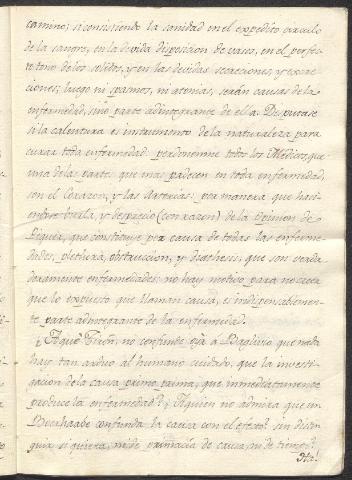 camino; si consistiendo la sanidad en el expedito circulo
de la sangre, en la devida disposicion de vasos, en el perfec-
to tono de los solidos, y en las devidas secreciones y excre-
ciones; luego ni spasmos, ni atonias, serán causas de la
enfermedad, sino parte adintegrante de ella. Disputase
si la calentura es instrumento de la naturaleza para
curar toda enfermedad: perdonenme todos los Medicos, que
una de las partes que mas padecen en toda enfermedad,
son el Corazon, y las Arterias: por manera que hasi-
endose burla, y desprecio (con razon) de la opinion de
Piquer, que constituye por causa de todas las enferme-
dades, plethora, obstruccion, y diathesis, que son verda-
deramente enfermedades: no hay motivo para no creer
que lo expuesto que llaman causa, es indispensablemen-
te parte adintegrante de la enfermedad.
¿A que Tiron, no confunde oir à Baglivio que nada
hay tan arduo al humano cuidado, que la investi-
gacion de la causa primo prima, que immediatamente
produce la enfermedad? ¿A quien no admira que un
Boerhaave confunda la causa con el efecto? sin distin-
guir si quiera, ni de primacia de causa, ni de tiempo?